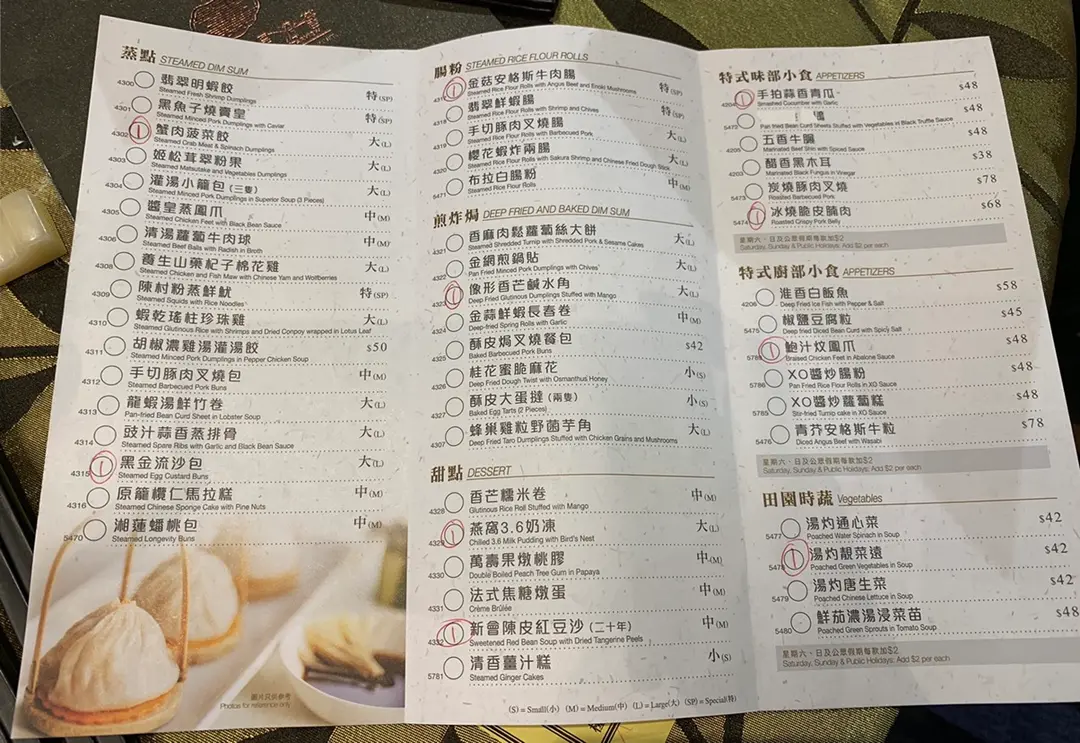 蒸點 STEAMED DIM SUM
4300 翡翠明蝦餃 特(SP)
Steamed Fresh Shrimp Dumplings
4301 黑魚子燒賣皇 特(SP)
Steamed Minced Pork Dumplings with Caviar
4302 蟹肉菠菜餃 大(L)
Steamed Crab Meat & Spinach Dumplings
4303 姬松茸翠粉果 大(L)
Steamed Matsutake and Vegetables Dumplings
4304 灌湯小籠包(三隻) 大(L)
Steamed Minced Pork Dumplings in Superior Soup (3 Pieces)
4305 醬皇蒸鳳爪 中(M)
Steamed Chicken Feet with Black Bean Sauce
4306 清湯蘿蔔牛肉球 中(M)
Steamed Beef Balls with Radish in Broth
4308 養生山藥杞子棉花雞 大(L)
Steamed Chicken and Fish Maw with Chinese Yam and Wolfberries
4309 陳村粉蒸鮮魷 特(SP)
Steamed Squids with Rice Noodles
4310 蝦乾瑤柱珍珠雞 大(L)
Steamed Glutinous Rice with Shrimps and Dried Conpoy wrapped in Lotus Leaf
4311 胡椒濃雞湯灌湯餃 $50
Steamed Minced Pork Dumplings in Pepper Chicken Soup
4312 手切豚肉叉燒包 中(M)
Steamed Barbecued Pork Buns
4313 龍蝦湯鮮竹卷 大(L)
Pan-fried Bean Curd Sheet in Lobster Soup
4314 豉汁蒜香蒸排骨 大(L)
Steamed Spare Ribs with Garlic and Black Bean Sauce
4315 黑金流沙包 大(L)
Steamed Egg Custard Buns
4316 原籠欖仁馬拉糕 中(M)
Steamed Chinese Sponge Cake with Pine Nuts
5470 湘蓮蟠桃包 中(M)
Steamed Longevity Buns
圖片只供參考
Photos for reference only
腸粉 STEAMED RICE FLOUR ROLLS
金菇安格斯牛肉腸 特(SP)
Steamed Rice Flour Rolls with Angus Beef and Enoki Mushrooms
4318 翡翠鮮蝦腸 特(SP)
Steamed Rice Flour Rolls with Shrimp and Chives
4319 手切豚肉叉燒腸 大(L)
Steamed Rice Flour Rolls with Barbecued Pork
4320 櫻花蝦炸兩腸 大(L)
Steamed Rice Flour Rolls with Sakura Shrimp and Chinese Fried Dough Stick
5471 布拉白腸粉 中(M)
Steamed Rice Flour Rolls
煎炸焗 DEEP FRIED AND BAKED DIM SUM
4321 香麻肉鬆蘿蔔絲大餅 大(L)
Steamed Shredded Turnip with Shredded Pork & Sesame Cakes
4322 金網煎鍋貼 大(L)
Pan Fried Minced Pork Dumplings with Chives
4323 像形香芒鹹水角 大(L)
Deep Fried Glutinous Dumplings Stuffed with Mango
4324 金蒜鮮蝦長春卷 中(M)
Deep-fried Spring Rolls with Garlic
4325 酥皮焗叉燒餐包 $42
Baked Barbecued Pork Buns
4326 桂花蜜脆麻花 小(S)
Deep Fried Dough Twist with Osmanthus Honey
4327 酥皮大蛋撻(兩隻) 小(S)
Baked Egg Tarts (2 Pieces)
4307 蜂巢雞粒野菌芋角 大(L)
Deep Fried Taro Dumplings Stuffed with Chicken Grains and Mushrooms
甜點 DESSERT
4328 香芒糯米卷 中(M)
Glutinous Rice Roll Stuffed with Mango
4329 燕窩3.6奶凍 大(L)
Chilled 3.6 Milk Pudding with Bird's Nest
4330 萬壽果燉桃膠 中(M)
Double Boiled Peach Tree Gum in Papaya
4331 法式焦糖燉蛋 中(M)
Crème Brûlée
4332 新會陳皮紅豆沙(二十年) 中(M)
Sweetened Red Bean Soup with Dried Tangerine Peels
5781 清香薑汁糕 小(S)
Steamed Ginger Cakes
(S)=Small(小) (M)=Medium(中) (L)=Large(大) (SP)=Special(特)
特式味部小食 APPETIZERS
4204 手拍蒜香青瓜 $48
Smashed Cucumber with Garlic
5472 鴨 $48
Pan fried Bean Curd Sheets Stuffed with Vegetables in Black Truffle Sauce
4205 五香牛𦟌 $48
Marinated Beef Shin with Spiced Sauce
4203 醋香黑木耳 $38
Marinated Black Fungus in Vinegar
5473 炭燒豚肉叉燒 $78
Roasted Barbecued Pork
5474 冰燒脆皮腩肉 $68
Roasted Crispy Pork Belly
星期六、日及公眾假期每款加$2
Saturday, Sunday & Public Holidays: Add $2 per each
特式廚部小食 APPETIZERS
4206 淮香白飯魚 $58
Deep Fried Ice Fish with Pepper & Salt
5475 椒鹽豆腐粒 $45
Deep fried Diced Bean Curd with Spicy Salt
鮑汁炆鳳爪 $48
Braised Chicken Feet in Abalone Sauce
5786 XO醬炒腸粉 $48
Pan Fried Rice Flour Rolls in XO Sauce
5785 XO醬炒蘿蔔糕 $48
Stir-fried Turnip cake in XO Sauce
5476 青芥安格斯牛粒 $78
Diced Angus Beef with Wasabi
星期六、日及公眾假期每款加$2
Saturday, Sunday & Public Holidays: Add $2 per each
田園時蔬 Vegetables
5477 湯灼通心菜 $42
Poached Water Spinach in Soup
5478 湯灼靚菜遠 $42
Poached Green Vegetables in Soup
5479 湯灼唐生菜 $42
Poached Chinese Lettuce in Soup
5480 鮮茄濃湯浸菜苗 $48
Poached Green Sprouts in Tomato Soup
星期六、日及公眾假期每款加$2
Saturday, Sunday & Public Holidays: Add $2 per each